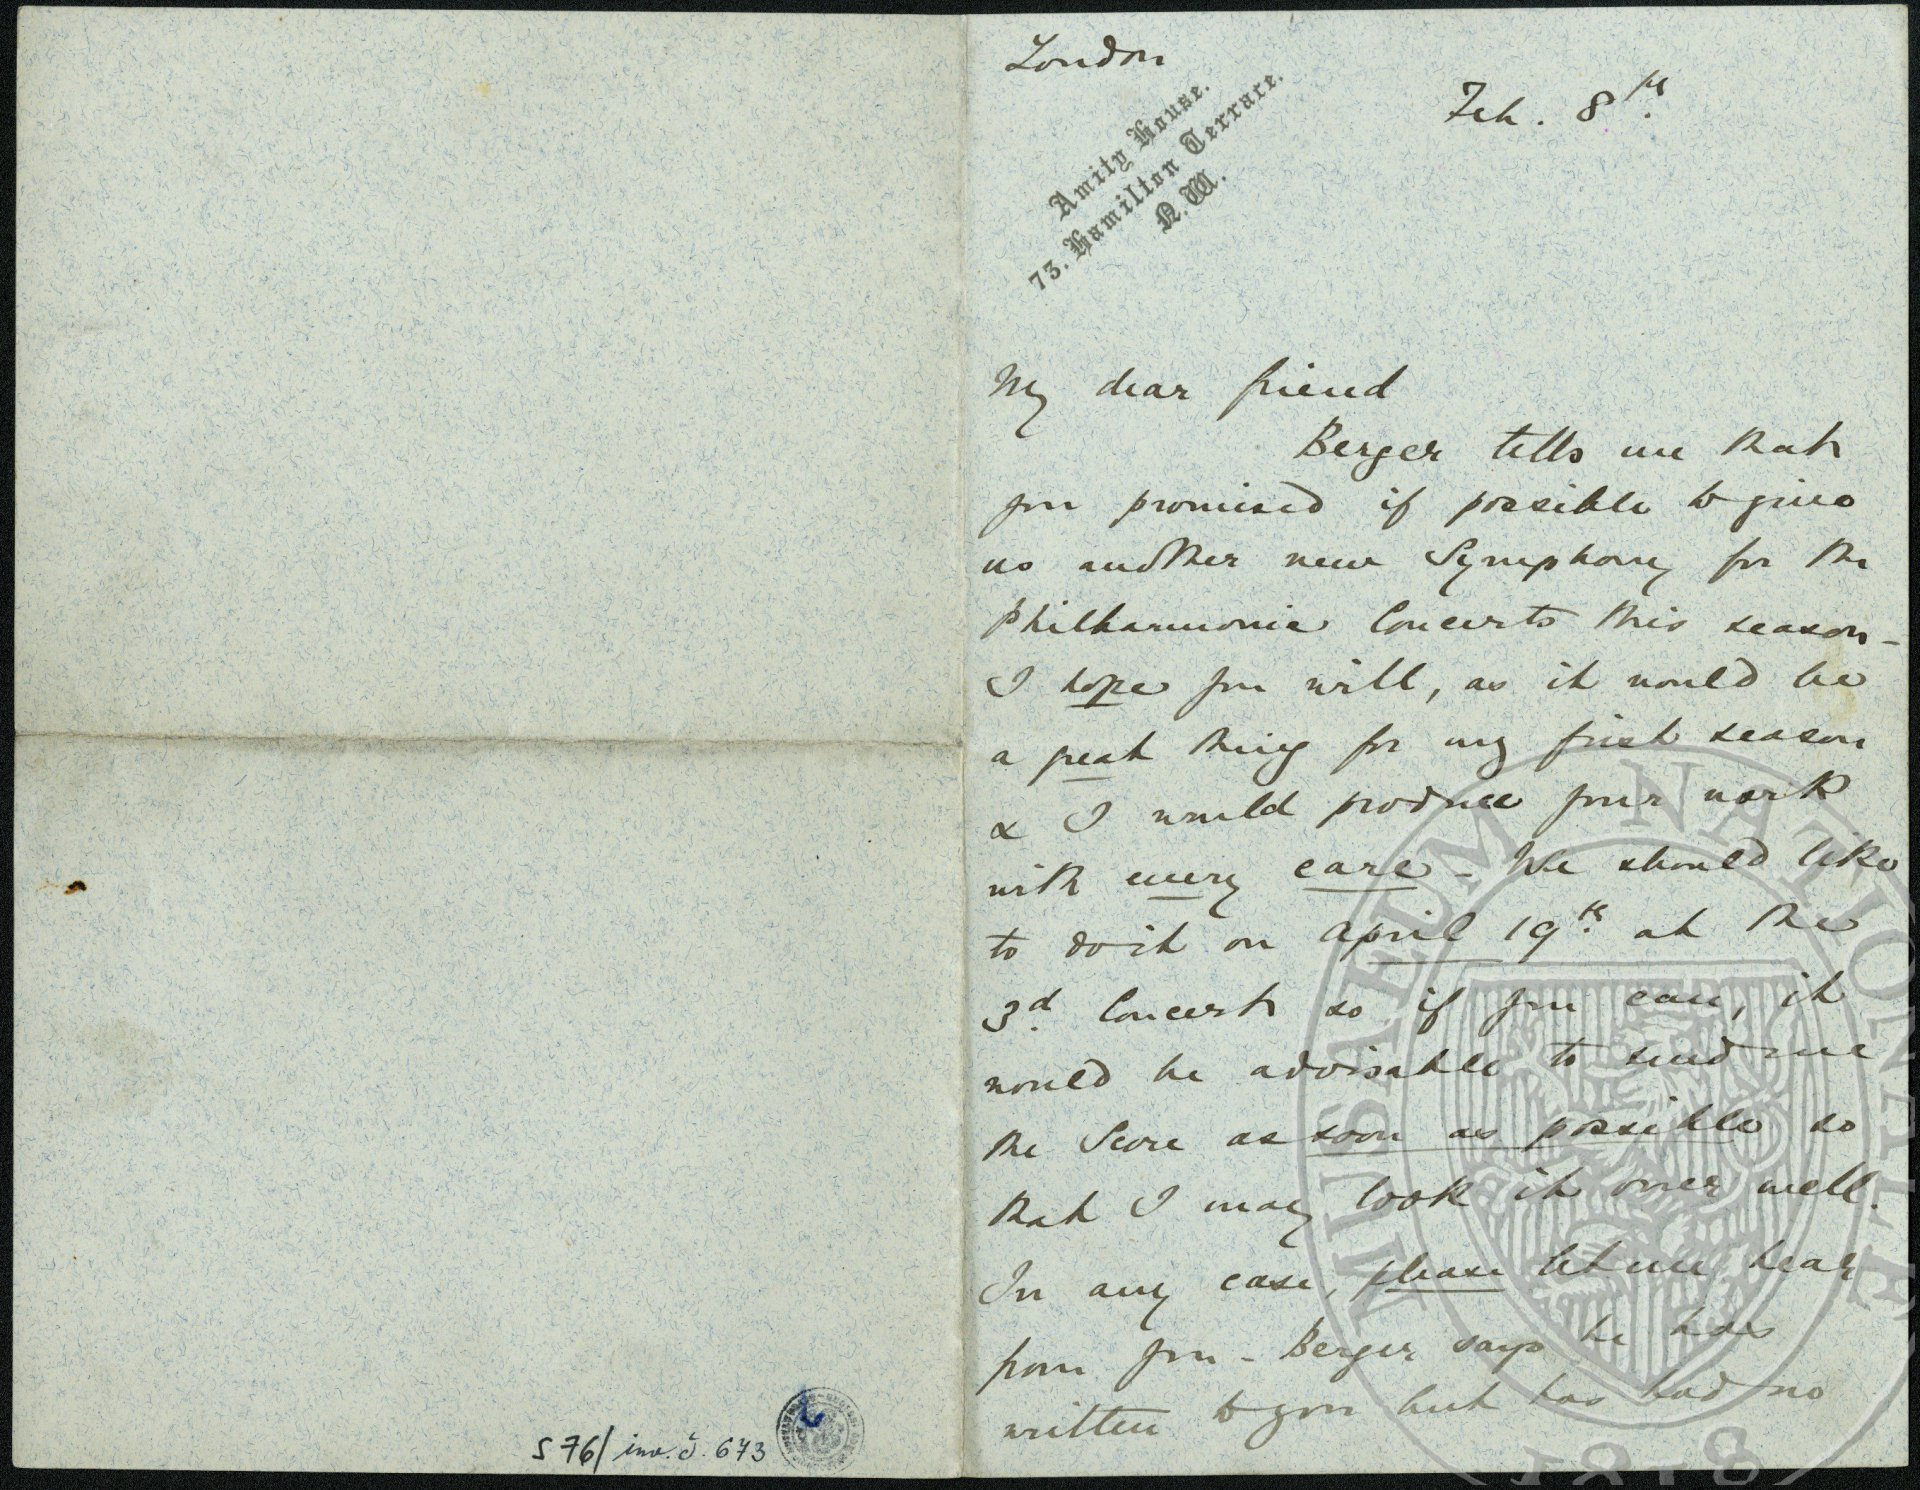 London
Feb. 8th.
Amity House.
73. Hamilton Terrace.
N.W.
My dear friend
Berger tells me that
you promised if possible to give
us another new Symphony for the
Philharmonic Concerts this season -
I hope you will, as it would be
a great thing for my first season
& I would produce your work
with every care - We should like
to do it on April 19th. at the
3d. Concert so if you can, it
would be advisable to send me
the Score as soon as possible so
that I may look it over well.
In any case, please let me hear
from you - Berger says he has
written to you but has had no
S 76/ inv. č. 673
MUSAEUM NATIONALE
1818